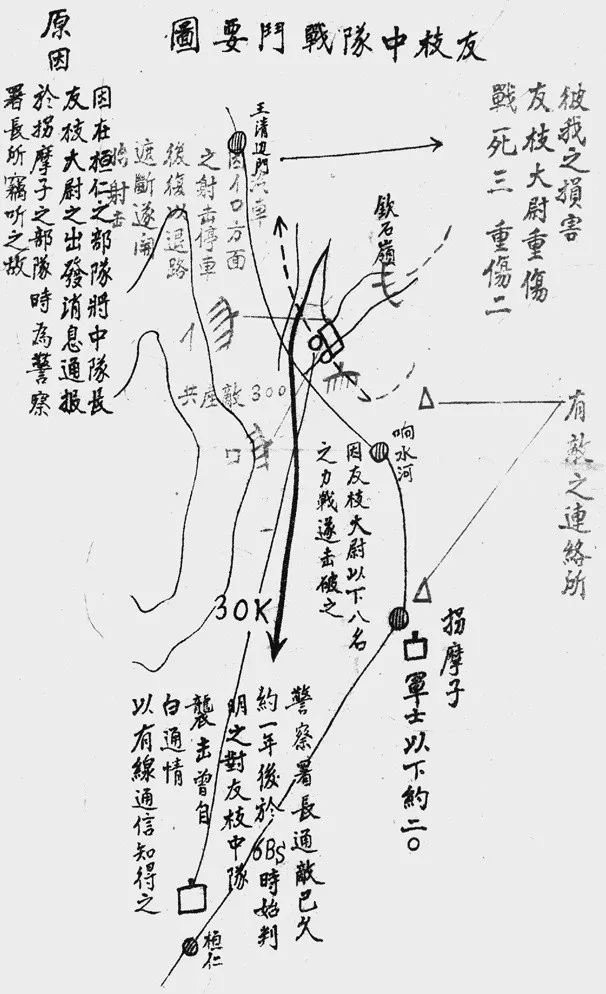 友枝中隊戰鬥要圖
彼我之損害
友枝大尉重傷
戰死三 重傷二
有敵之連絡所
欽石嶺
王清边門
汽車
因イロ方面
之射击停車
後復以退路
遮斷遂開
始射击
原因
因在桓仁之部隊將中隊長
友枝大尉之出發消息通报
於拐摩子之部隊時為警察
署長所竊听之故
イ
共座敵300
ロ
响水河
因友枝大尉以下八名
之力戰遂击破之
30K
拐摩子
軍士以下約二〇
警察署長通敵已久
約一年後於6BS時始判
明之對友枝中隊
襲击曾自
白通情
以有線通信知得之
桓仁